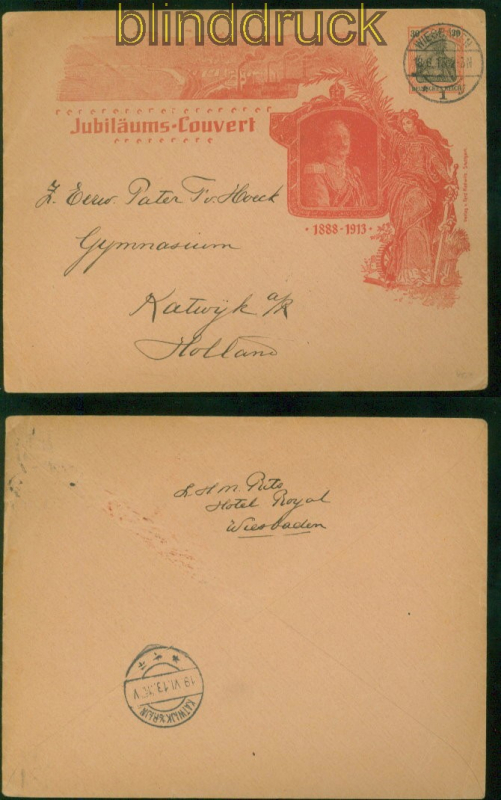 blinddruck
30 30
DEUTSCHES REICH
Jubiläums-Couvert
· 1888 - 1913 ·
Z. Eerw. Pater F. v. Hoeck
Gymnasium
Katwijk a/R
Holland
L. H. M.
Hotel Royal
Wiesbaden
18.VI.13.
KATWIJK a/d RIJN